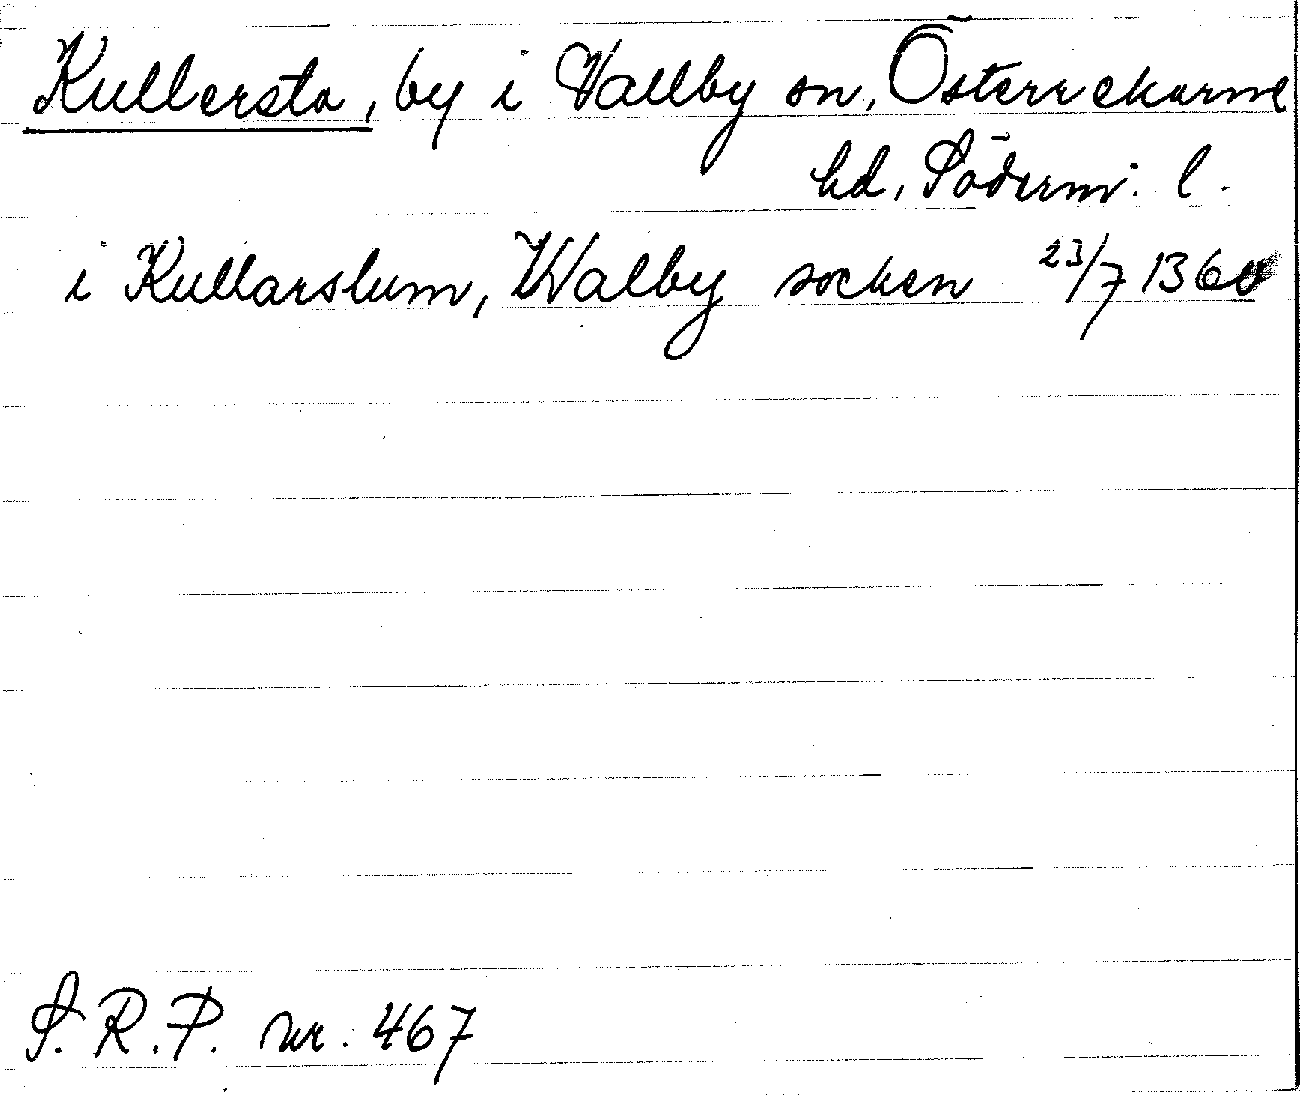 Kullersta, by i Vallby sn, Österrekarne
hd, Söderm. l.
i Kullarslum, Walby socken 23/7 1360
S. R. P. nr. 467